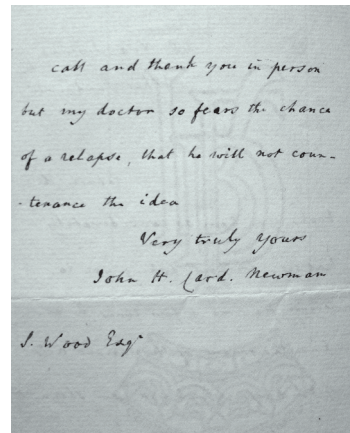 call and thank you in person
but my doctor so fears the chance
of a relapse, that he will not coun-
-tenance the idea
Very truly yours
John H. Card. Newman
S. Wood Esqr